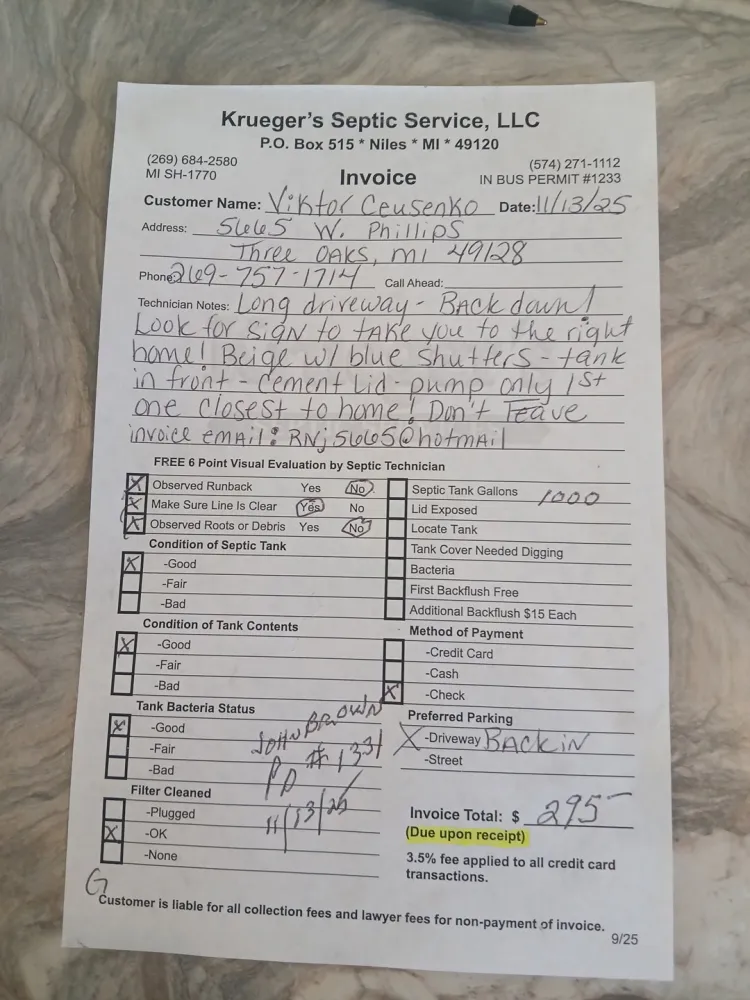 Krueger's Septic Service, LLC
P.O. Box 515 * Niles * MI * 49120
(269) 684-2580
(574) 271-1112
MI SH-1770
Invoice
IN BUS PERMIT #1233
Customer Name: Viktor Ceusenko Date: 11/13/25
Address: 5665 W. Phillips
Three Oaks, MI 49128
Phone: 269-757-1714 Call Ahead:
Technician Notes: Long driveway - Back down!
Look for sign to take you to the right
home! Beige w/ blue shutters - tank
in front - Cement Lid - pump only 1st
one closest to home! Don't leave
invoice email: RNj5665@hotmail
FREE 6 Point Visual Evaluation by Septic Technician
X Observed Runback Yes No
X Make Sure Line Is Clear Yes No
X Observed Roots or Debris Yes No
Condition of Septic Tank
X -Good
-Fair
-Bad
Condition of Tank Contents
X -Good
-Fair
-Bad
Tank Bacteria Status
X -Good
-Fair
-Bad
Filter Cleaned
-Plugged
X -OK
-None
John Brown
PD #1331
11/13/25
Septic Tank Gallons 1000
Lid Exposed
Locate Tank
Tank Cover Needed Digging
Bacteria
First Backflush Free
Additional Backflush $15 Each
Method of Payment
-Credit Card
-Cash
X -Check
Preferred Parking
X -Driveway Back in
-Street
Invoice Total: $ 295
(Due upon receipt)
3.5% fee applied to all credit card
transactions.
G
Customer is liable for all collection fees and lawyer fees for non-payment of invoice.
9/25